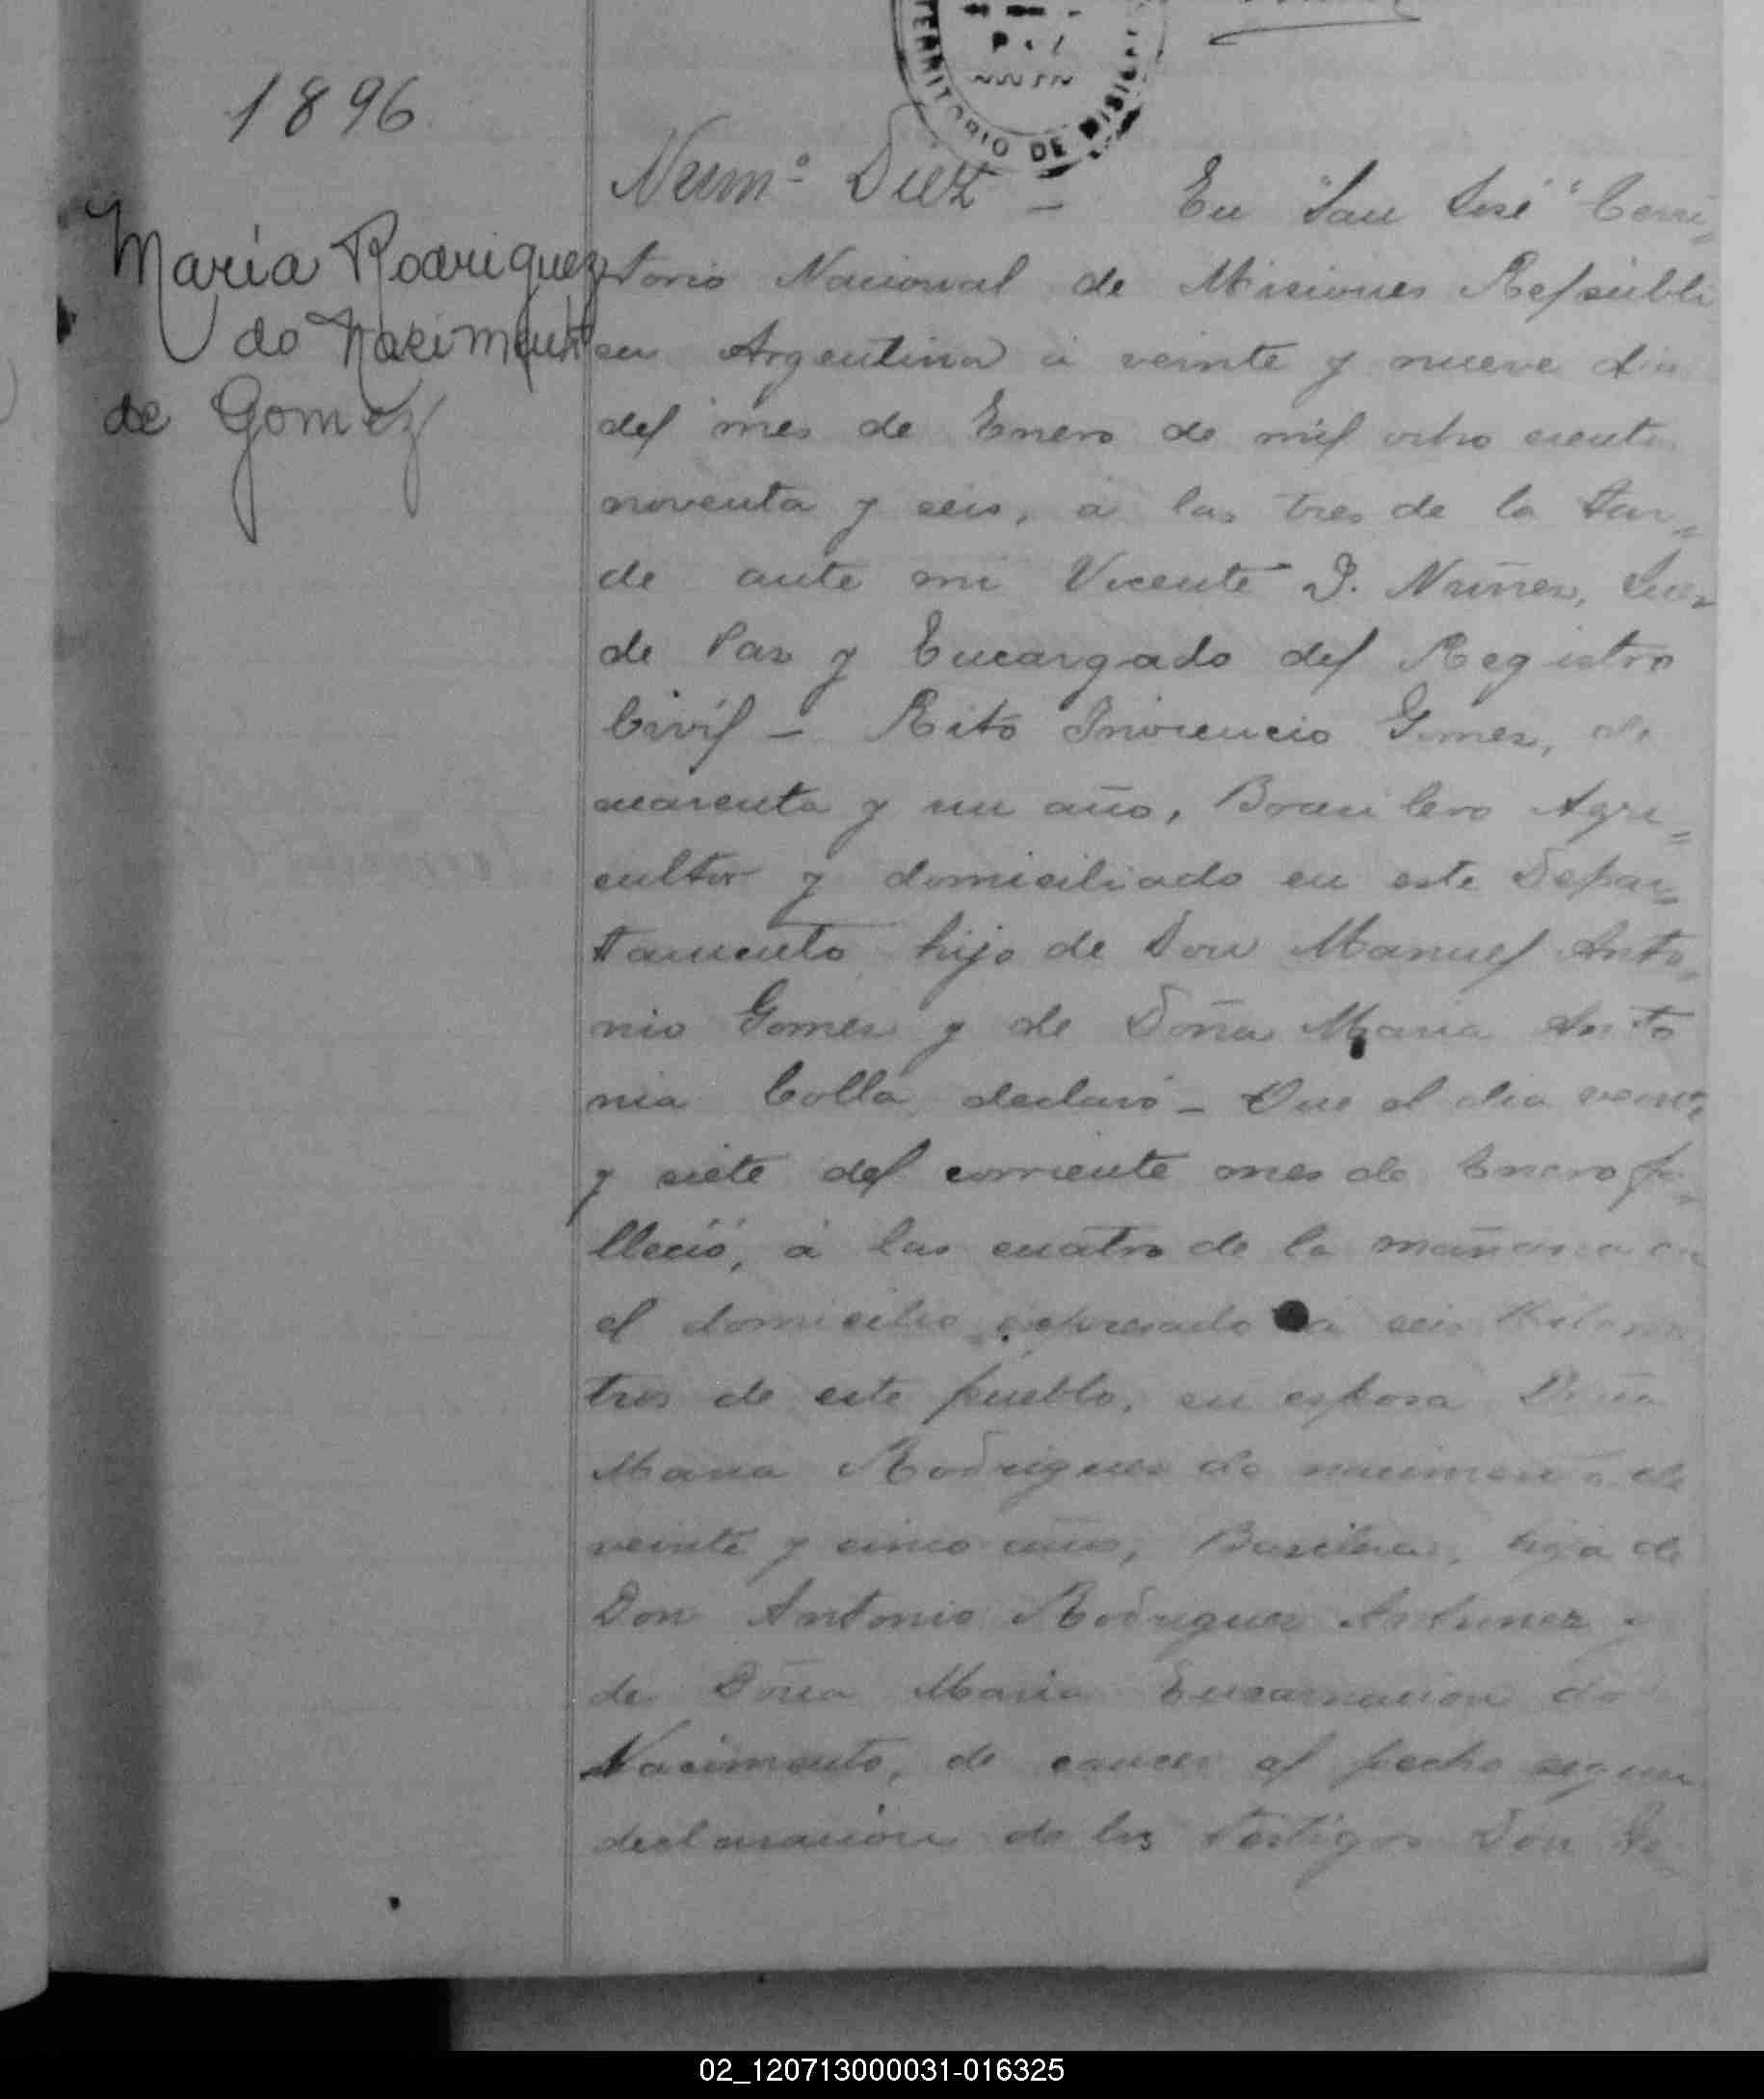 TERRITORIO DE MISIONES
1896
María Rodriguez
do Nacimento
de Gomez
Numº Diez — En "San José" Terri=
torio Nacional de Misiones Repúbli
ca Argentina á veinte y nueve dias
del mes de Enero de mil ocho cientos
noventa y seis, á las tres de la tar=
de ante mi Vicente D. Nuñez, Juez
de Paz y Encargado del Registro
Civil — Rito Inocencio Gomez, de
cuarenta y un año, Brasilero Agri=
cultor y domiciliado en este Depar=
tamento hijo de Don Manuel Anto=
nio Gomez y de Doña Maria Anto
nia Colla declaró — Que el dia veinte
y siete del corriente mes de Enero fa=
lleció, á las cuatro de la mañana en
el domicilio espresado á seis Kilome
tros de este pueblo, su esposa Doña
Maria Rodriguez do nacimento de
veinte y cinco años, Brasilera, hija de
Don Antonio Rodriguez Antunez y
de Doña Maria Encarnacion do
Nacimento, de cancer al pecho segun
declaracion de los testigos Don
02_120713000031-016325